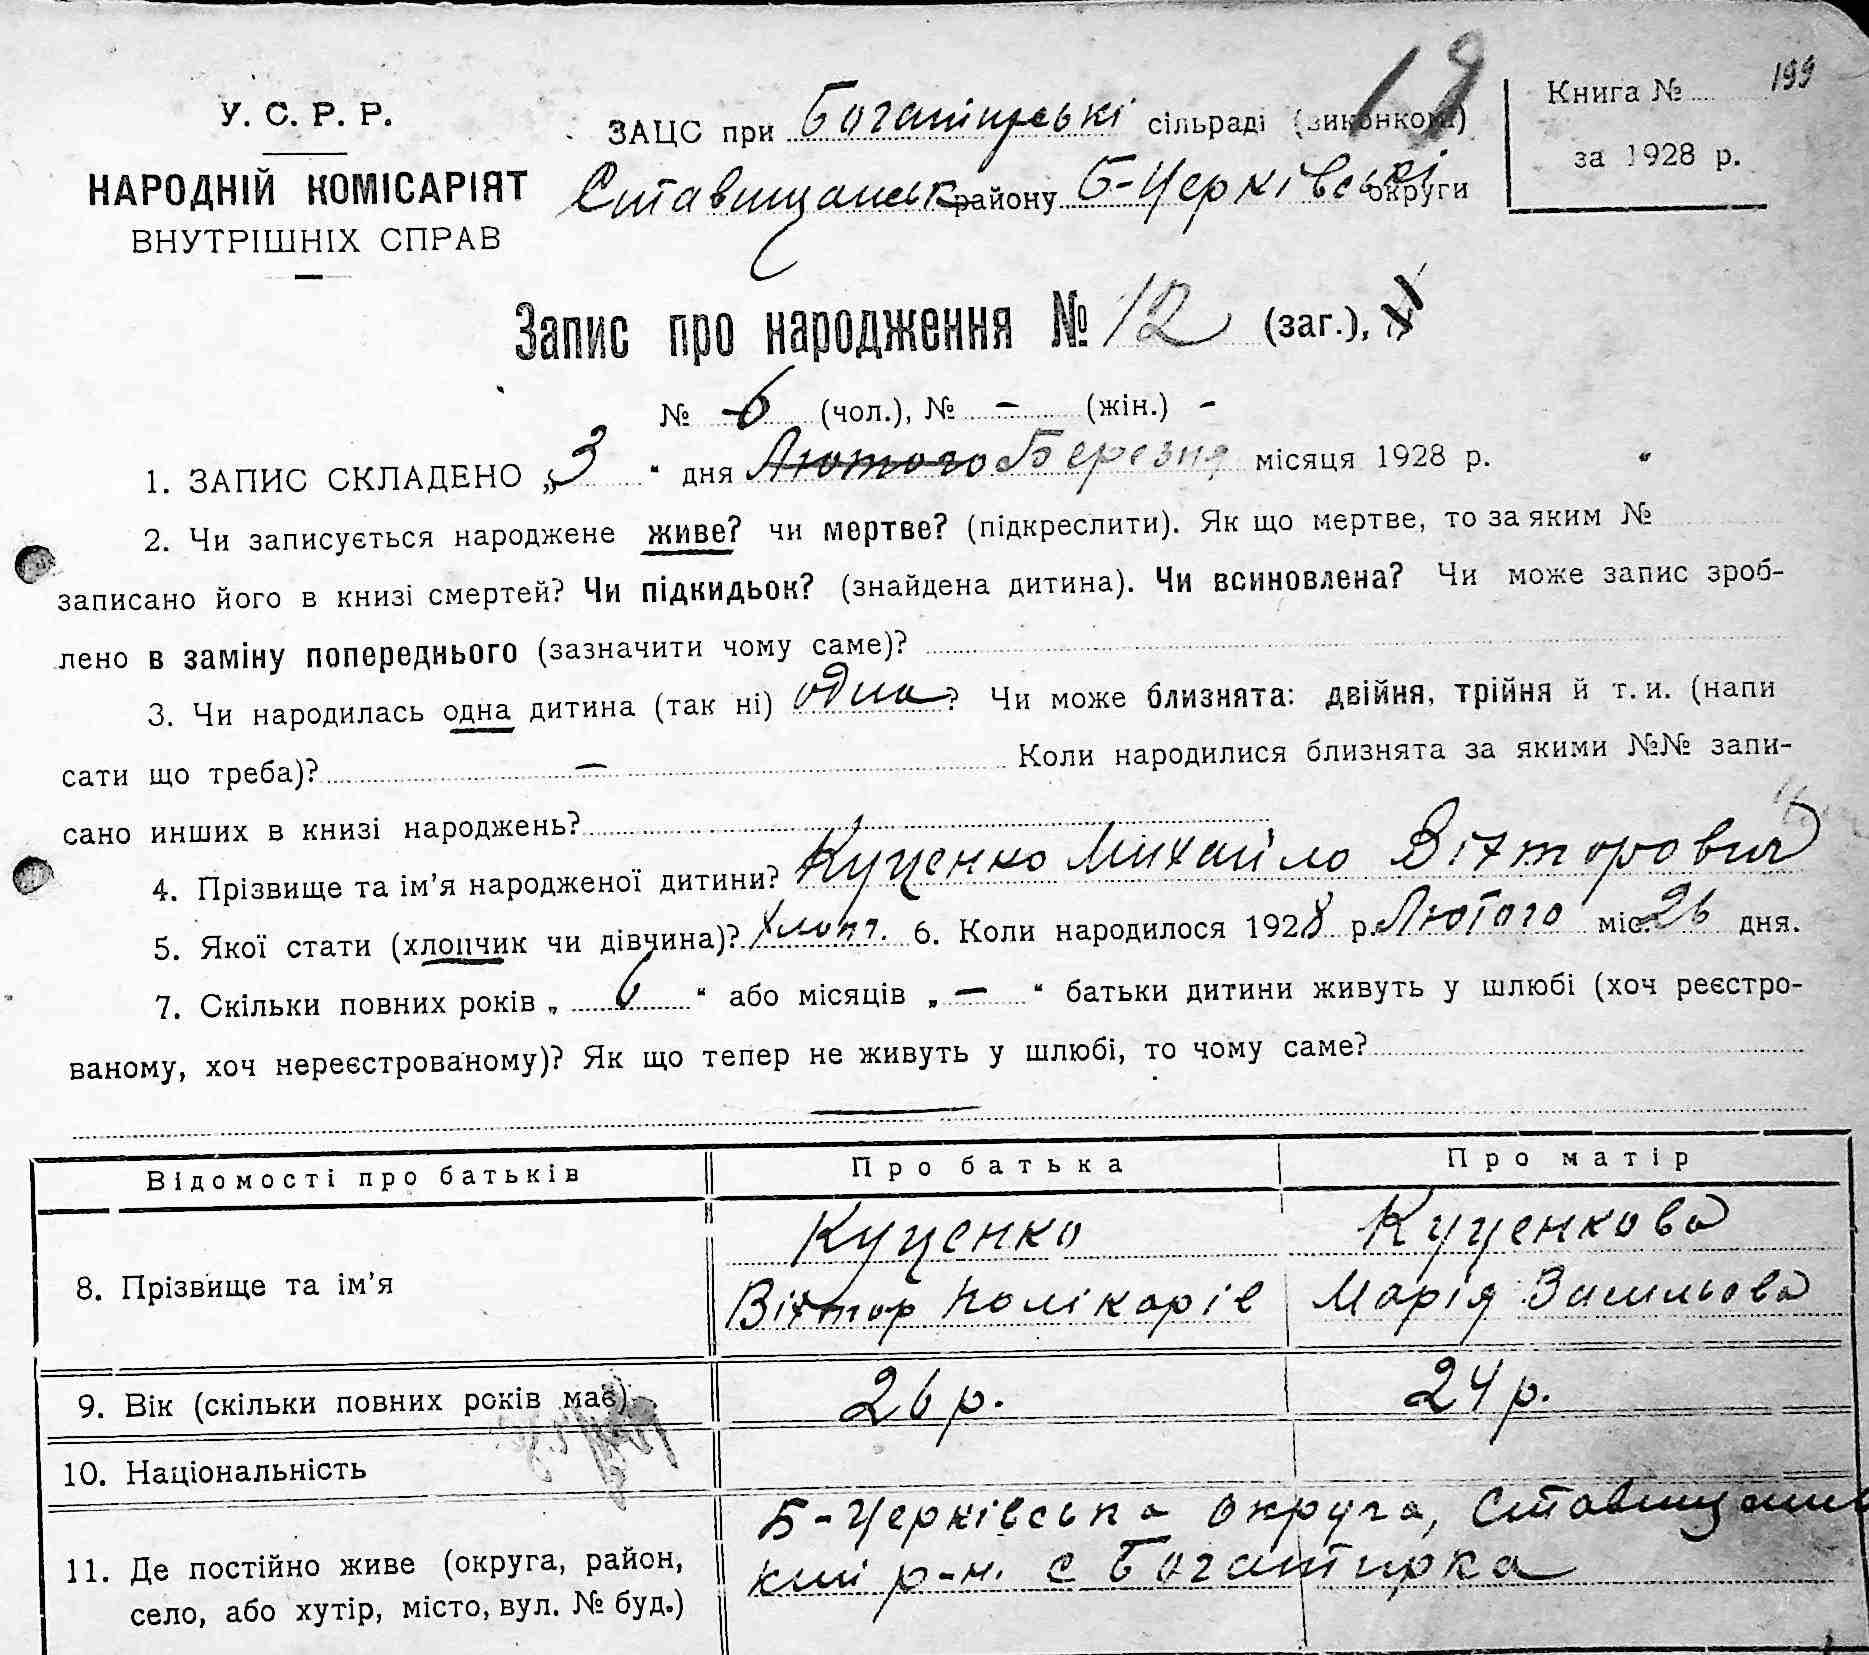 199
19
У. С. Р. Р.
НАРОДНІЙ КОМІСАРІЯТ
ВНУТРІШНІХ СПРАВ
ЗАЦС при Богатирські сільраді (виконкомі)
Ставищанськ району Б-Церківські округи
Книга №
за 1928 р.
Запис про народження № 12 (заг.),
№ 6 (чол.), № – (жін.) -
1. ЗАПИС СКЛАДЕНО „3“ дня Лютого Березня місяця 1928 р.
2. Чи записується народжене живе? чи мертве? (підкреслити). Як що мертве, то за яким №
записано його в книзі смертей? Чи підкидьок? (знайдена дитина). Чи всиновлена? Чи може запис зроб-
лено в заміну попереднього (зазначити чому саме)?
3. Чи народилась одна дитина (так ні) одна? Чи може близнята: двійня, трійня й т. и. (напи
сати що треба)? – Коли народилися близнята за якими №№ запи-
сано инших в книзі народжень?
4. Прізвище та ім’я народженої дитини? Куценко Михайло Вікторович
5. Якої стати (хлопчик чи дівчина)? Хлопч. 6. Коли народилося 1928 р. Лютого міс. 26 дня.
7. Скільки повних років „ 6 “ або місяців „ – “ батьки дитини живуть у шлюбі (хоч реєстро-
ваному, хоч нереєстрованому)? Як що тепер не живуть у шлюбі, то чому саме?
Відомості про батьків Про батька Про матір
8. Прізвище та ім’я
Куценко Куценкова
Віктор Полікарпів Марія Васильова
9. Вік (скільки повних років має) 26 р. 24 р.
10. Національність
11. Де постійно живе (округа, район,
село, або хутір, місто, вул. № буд.)
Б-Церківська округа, Ставищансь
кий р-н. с Богатирка